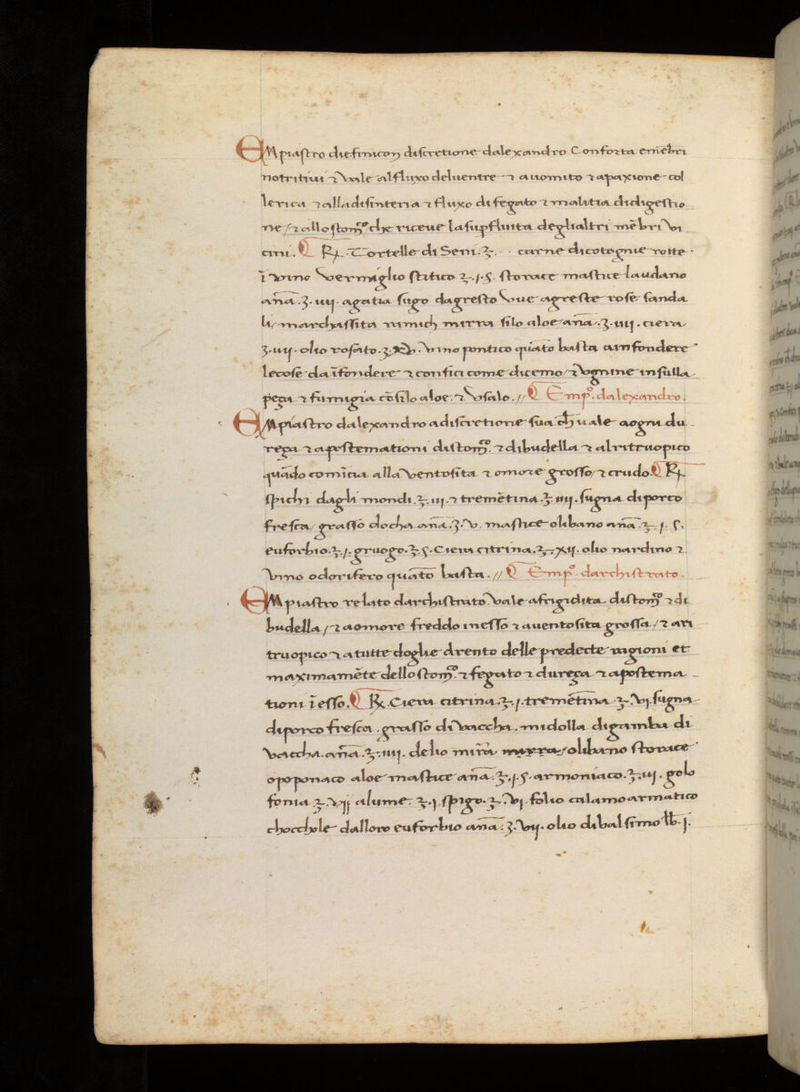 EMpiastro diefinicon discretione dalexandro. Conforta emēbri
notritiui ⁊ Vale alfluxo deluentre ⁊ auomito ⁊ apaxione col
lerica ⁊ alladisinteria ⁊ fluxo di fegato ⁊ malitia didigestio
ne / ⁊ allo stomͦ che riceue lasupfluita deglialtri mēbri Vi
cini. ℞. Tortelle di Seni. ℥. carne dicotognie cotte
ī Vino Vermiglio stitico ℥. j. s. storace mastice laudano
ana. ʒ. iiij. agatia sugo dagresto Vue agreste rose sanda
li / marchassita ramich mirra filo aloe ana. ʒ. iiij. ciera
ʒ. iiij. olio rosato. ʒ. Vino pontico quāto basta ainfondere
lecose da īfondere ⁊ confici come dicemo / ⁊ Vognine insulla
peça ⁊ fumigia cō filo aloe. ⁊ Vsalo. // Empͦ. dalexandro.
EMpiastro dalexandro adiscretione sua ch uale aogni du
reça ⁊ apostemationi distomͦ. ⁊ dibudella ⁊ alritruopico
quādo comīcia alla Ventosita ⁊ omore grosso / ⁊ crudo ℞
spichi dagli mondi. ℥. iij. ⁊ tremētina. ℥. iiij. sugna diporco
fresca / grasso docha ana. ʒ. V. mastice olibano ana ℥. j. s.
euforbio. ℥. j. gruogo. ℥. s. Ciera citrina. ℥. xij. olio nardino ⁊
Vino odorifero quāto basta. // Empͦ. darchistrato.
EMpiastro relato darchistrato Vale afrigidita distomͦ ⁊ di
budella / ⁊ aomore freddo inesso ⁊ auentosita grossa / ⁊ ari
truopico ⁊ atutte doglie drento delle predecte ragioni et
maximamēte dello stomͦ. ⁊ fegato ⁊ dureça ⁊ apostema
tioni ī esso. ℞. Ciera citrina. ℥. j. tremētina ℥. Vj. sugna
diporco fresca. grasso di Vaccha. midolla digamba di
Vaccha. ana. ℥. iiij. delio mirra olibano storace
opoponaco aloe mastice ana. ℥. j. s. armoniaco. ℥. iij. golo
fonia ℥. Vij alume. ℥. j. spigo. ℥. Vj. folio calamo armatico
chocchole dalloro euforbio ana. ʒ. Vij. olio dibalsimo lb. j.